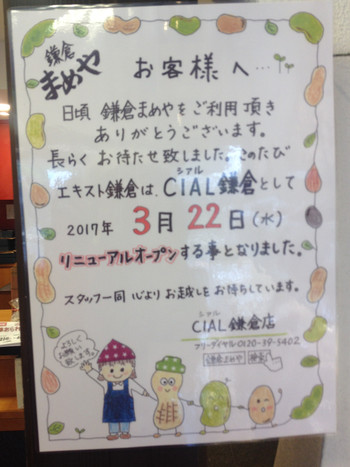 鎌倉
まめや
お客様へ…
日頃 鎌倉まめやをご利用頂き
ありがとうございます。
長らく お待たせ致しました。このたび
エキスト鎌倉は、CIAL鎌倉として
シァル
2017年 3月 22日(水)
リニューアルオープンする事となりました。
スタッフ一同 心よりお越しをお待ちしています。
シァル
CIAL鎌倉店
フリーダイヤル 0120-39-5402
鎌倉まめや 検索
よろしく
お願い
致します。